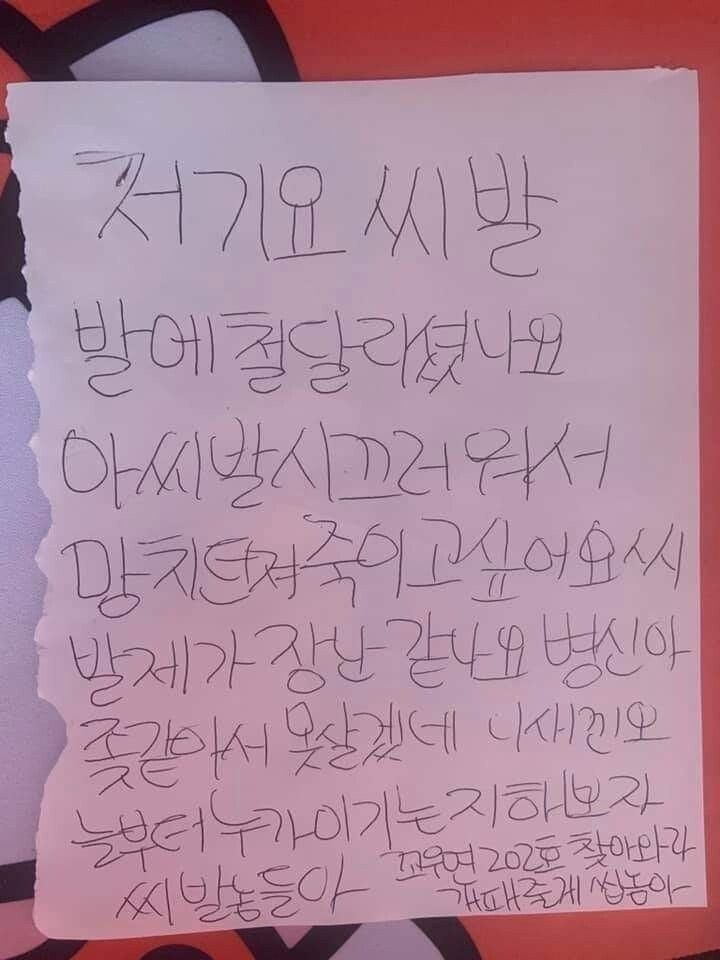 저기요 씨발
발에 철달리셨나요
아씨발시끄러워서
망치던져죽이고싶어요씨
발제가 장난 같나요 병신아
좆같아서 못살겠네 니새낀오
늘부터 누가이기는지해보자
씨발놈들아
202호 찾아와라
개패줄게 씹놈아